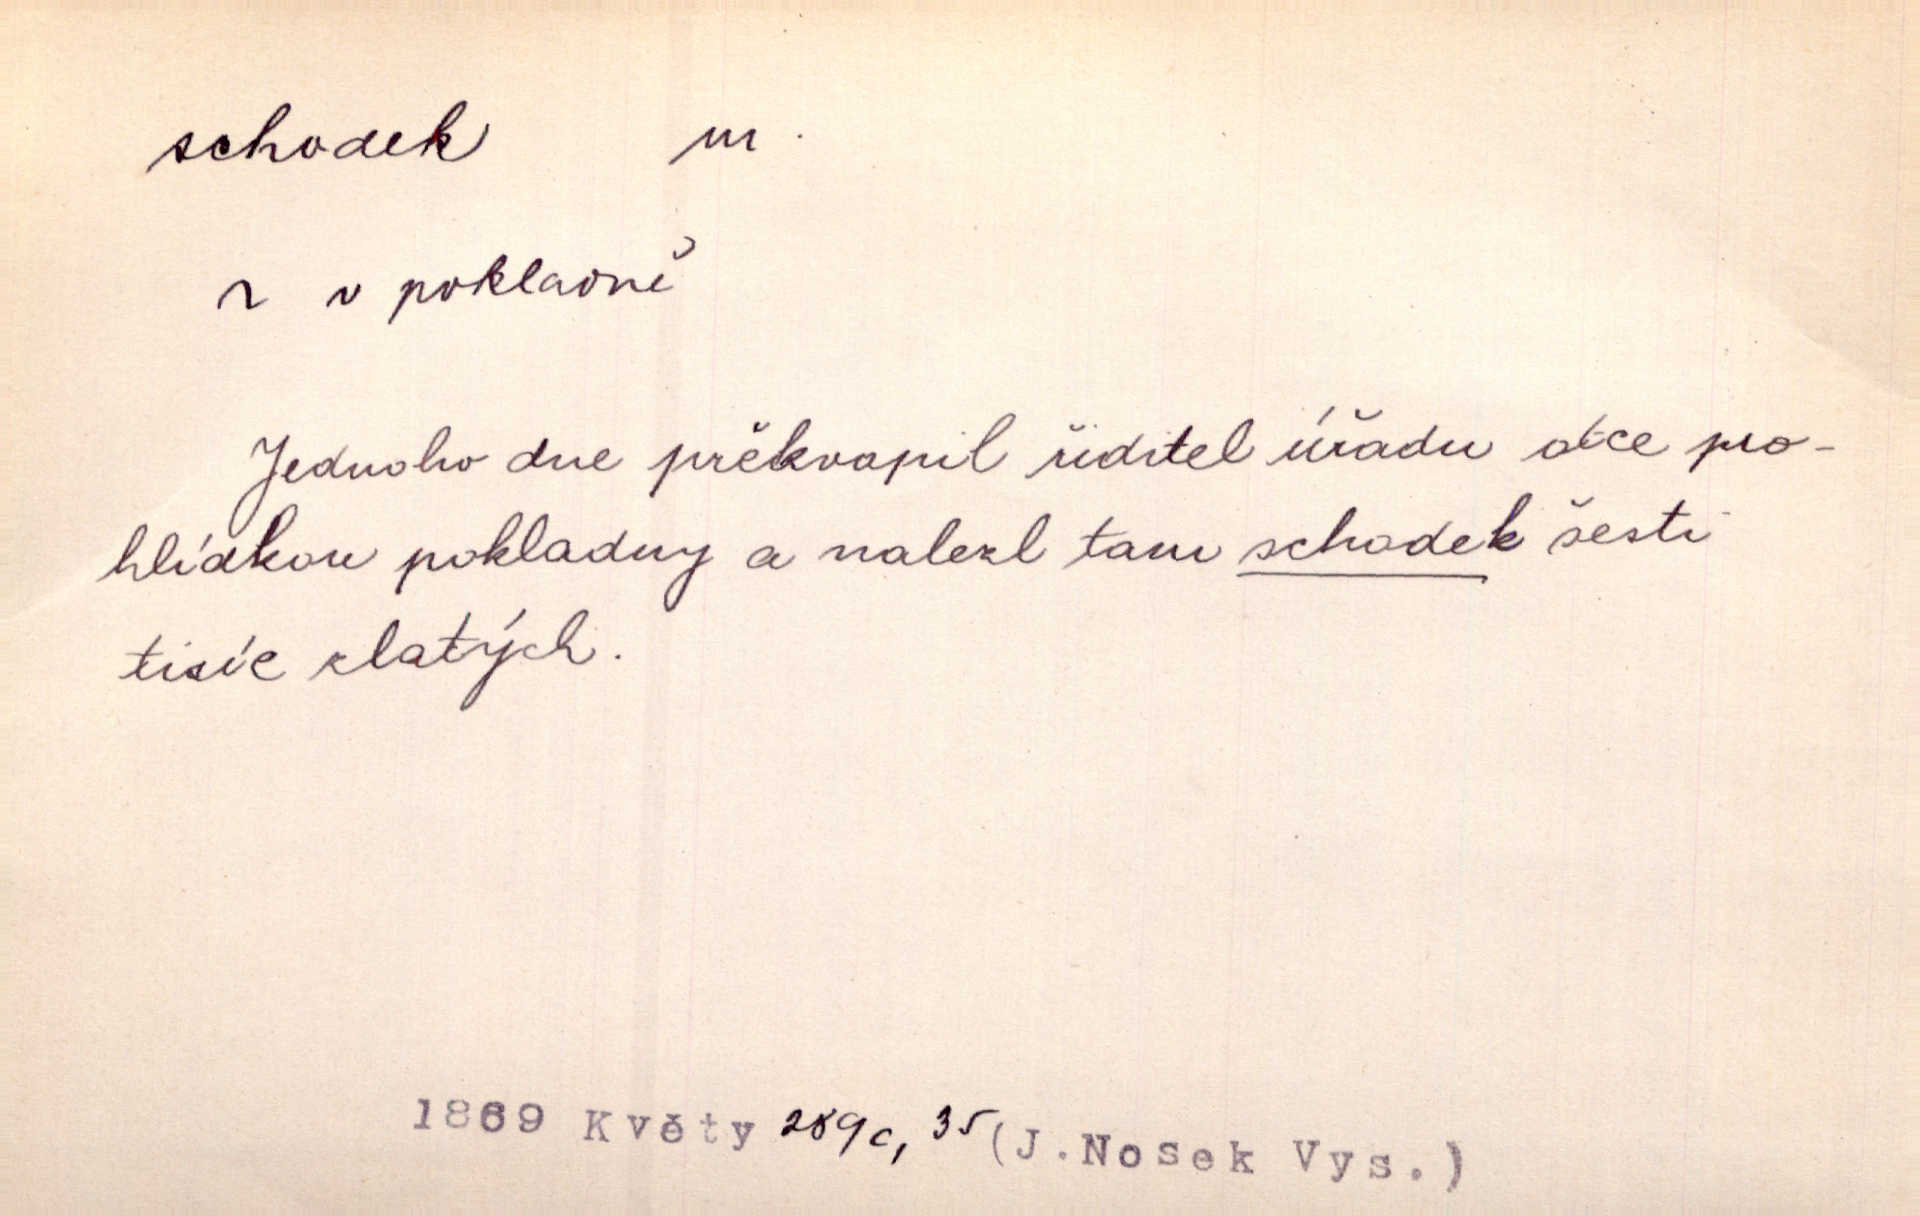 schodek m.
~ v pokladně
Jednoho dne překvapil řiditel úřadu otce pro-
hlídkou pokladny a nalezl tam schodek šesti
tisíc zlatých.
1869 Květy 289c, 35 (J.Nosek Vys.)